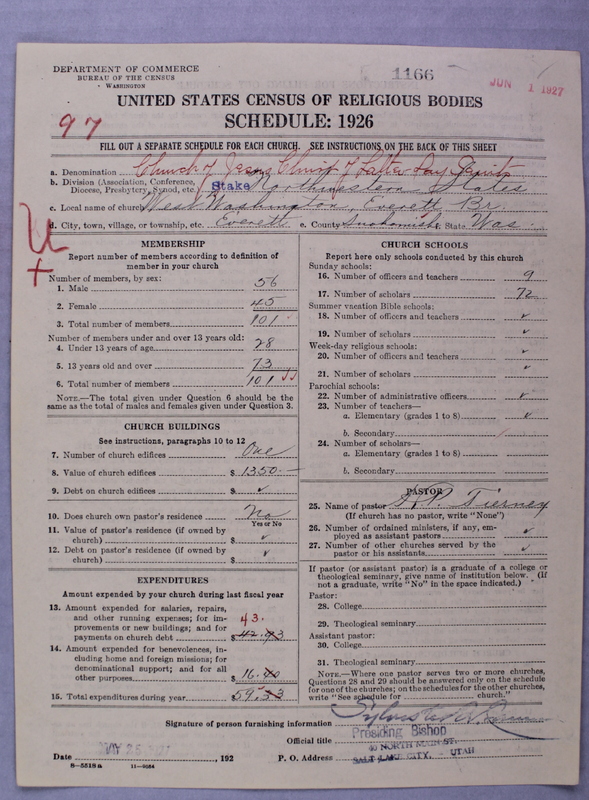 DEPARTMENT OF COMMERCE
BUREAU OF THE CENSUS
WASHINGTON
1166
JUN 1 1927
UNITED STATES CENSUS OF RELIGIOUS BODIES
SCHEDULE: 1926
97
FILL OUT A SEPARATE SCHEDULE FOR EACH CHURCH. SEE INSTRUCTIONS ON THE BACK OF THIS SHEET
a. Denomination Church of Jesus Christ of Latter Day Saints
b. Division (Association, Conference, Diocese, Presbytery, Synod, etc.) Stake Northwestern States
c. Local name of church West Washington, Everett Br.
d. City, town, village, or township, etc. Everett e. County Snohomish f. State Was
MEMBERSHIP
Report number of members according to definition of
member in your church
Number of members, by sex:
1. Male 56
2. Female 45
3. Total number of members 101
Number of members under and over 13 years old:
4. Under 13 years of age 28
5. 13 years old and over 73
6. Total number of members 101
NOTE.—The total given under Question 6 should be the
same as the total of males and females given under Question 3.
CHURCH BUILDINGS
See instructions, paragraphs 10 to 12
7. Number of church edifices One
8. Value of church edifices $ 1350.—
9. Debt on church edifices $ ✓
10. Does church own pastor's residence No
Yes or No
11. Value of pastor's residence (if owned by
church) $ ✓
12. Debt on pastor's residence (if owned by
church) $ ✓
EXPENDITURES
Amount expended by your church during last fiscal year
13. Amount expended for salaries, repairs,
and other running expenses; for im- 43.
provements or new buildings; and for
payments on church debt $ 42.93
14. Amount expended for benevolences, in-
cluding home and foreign missions; for
denominational support; and for all
other purposes $ 16.40
15. Total expenditures during year $ 59.33
CHURCH SCHOOLS
Report here only schools conducted by this church
Sunday schools:
16. Number of officers and teachers 9
17. Number of scholars 72
Summer vacation Bible schools:
18. Number of officers and teachers ✓
19. Number of scholars ✓
Week-day religious schools:
20. Number of officers and teachers ✓
21. Number of scholars ✓
Parochial schools:
22. Number of administrative officers ✓
23. Number of teachers—
a. Elementary (grades 1 to 8) ✓
b. Secondary
24. Number of scholars—
a. Elementary (grades 1 to 8)
b. Secondary
PASTOR
25. Name of pastor Tierney
(If church has no pastor, write "None")
26. Number of ordained ministers, if any, em-
ployed as assistant pastors ✓
27. Number of other churches served by the
pastor or his assistants ✓
If pastor (or assistant pastor) is a graduate of a college or
theological seminary, give name of institution below. (If
not a graduate, write "No" in the space indicated.)
Pastor:
28. College
29. Theological seminary
Assistant pastor:
30. College
31. Theological seminary
NOTE.—Where one pastor serves two or more churches,
Questions 28 and 29 should be answered only on the schedule
for one of the churches; on the schedules for the other churches,
write "See schedule for church."
Signature of person furnishing information Sylvester Q. Cannon
Official title Presiding Bishop
Date MAY 25 1927, 192 P. O. Address 40 NORTH MAIN ST.
SALT LAKE CITY, UTAH
8—5518a 11—9084